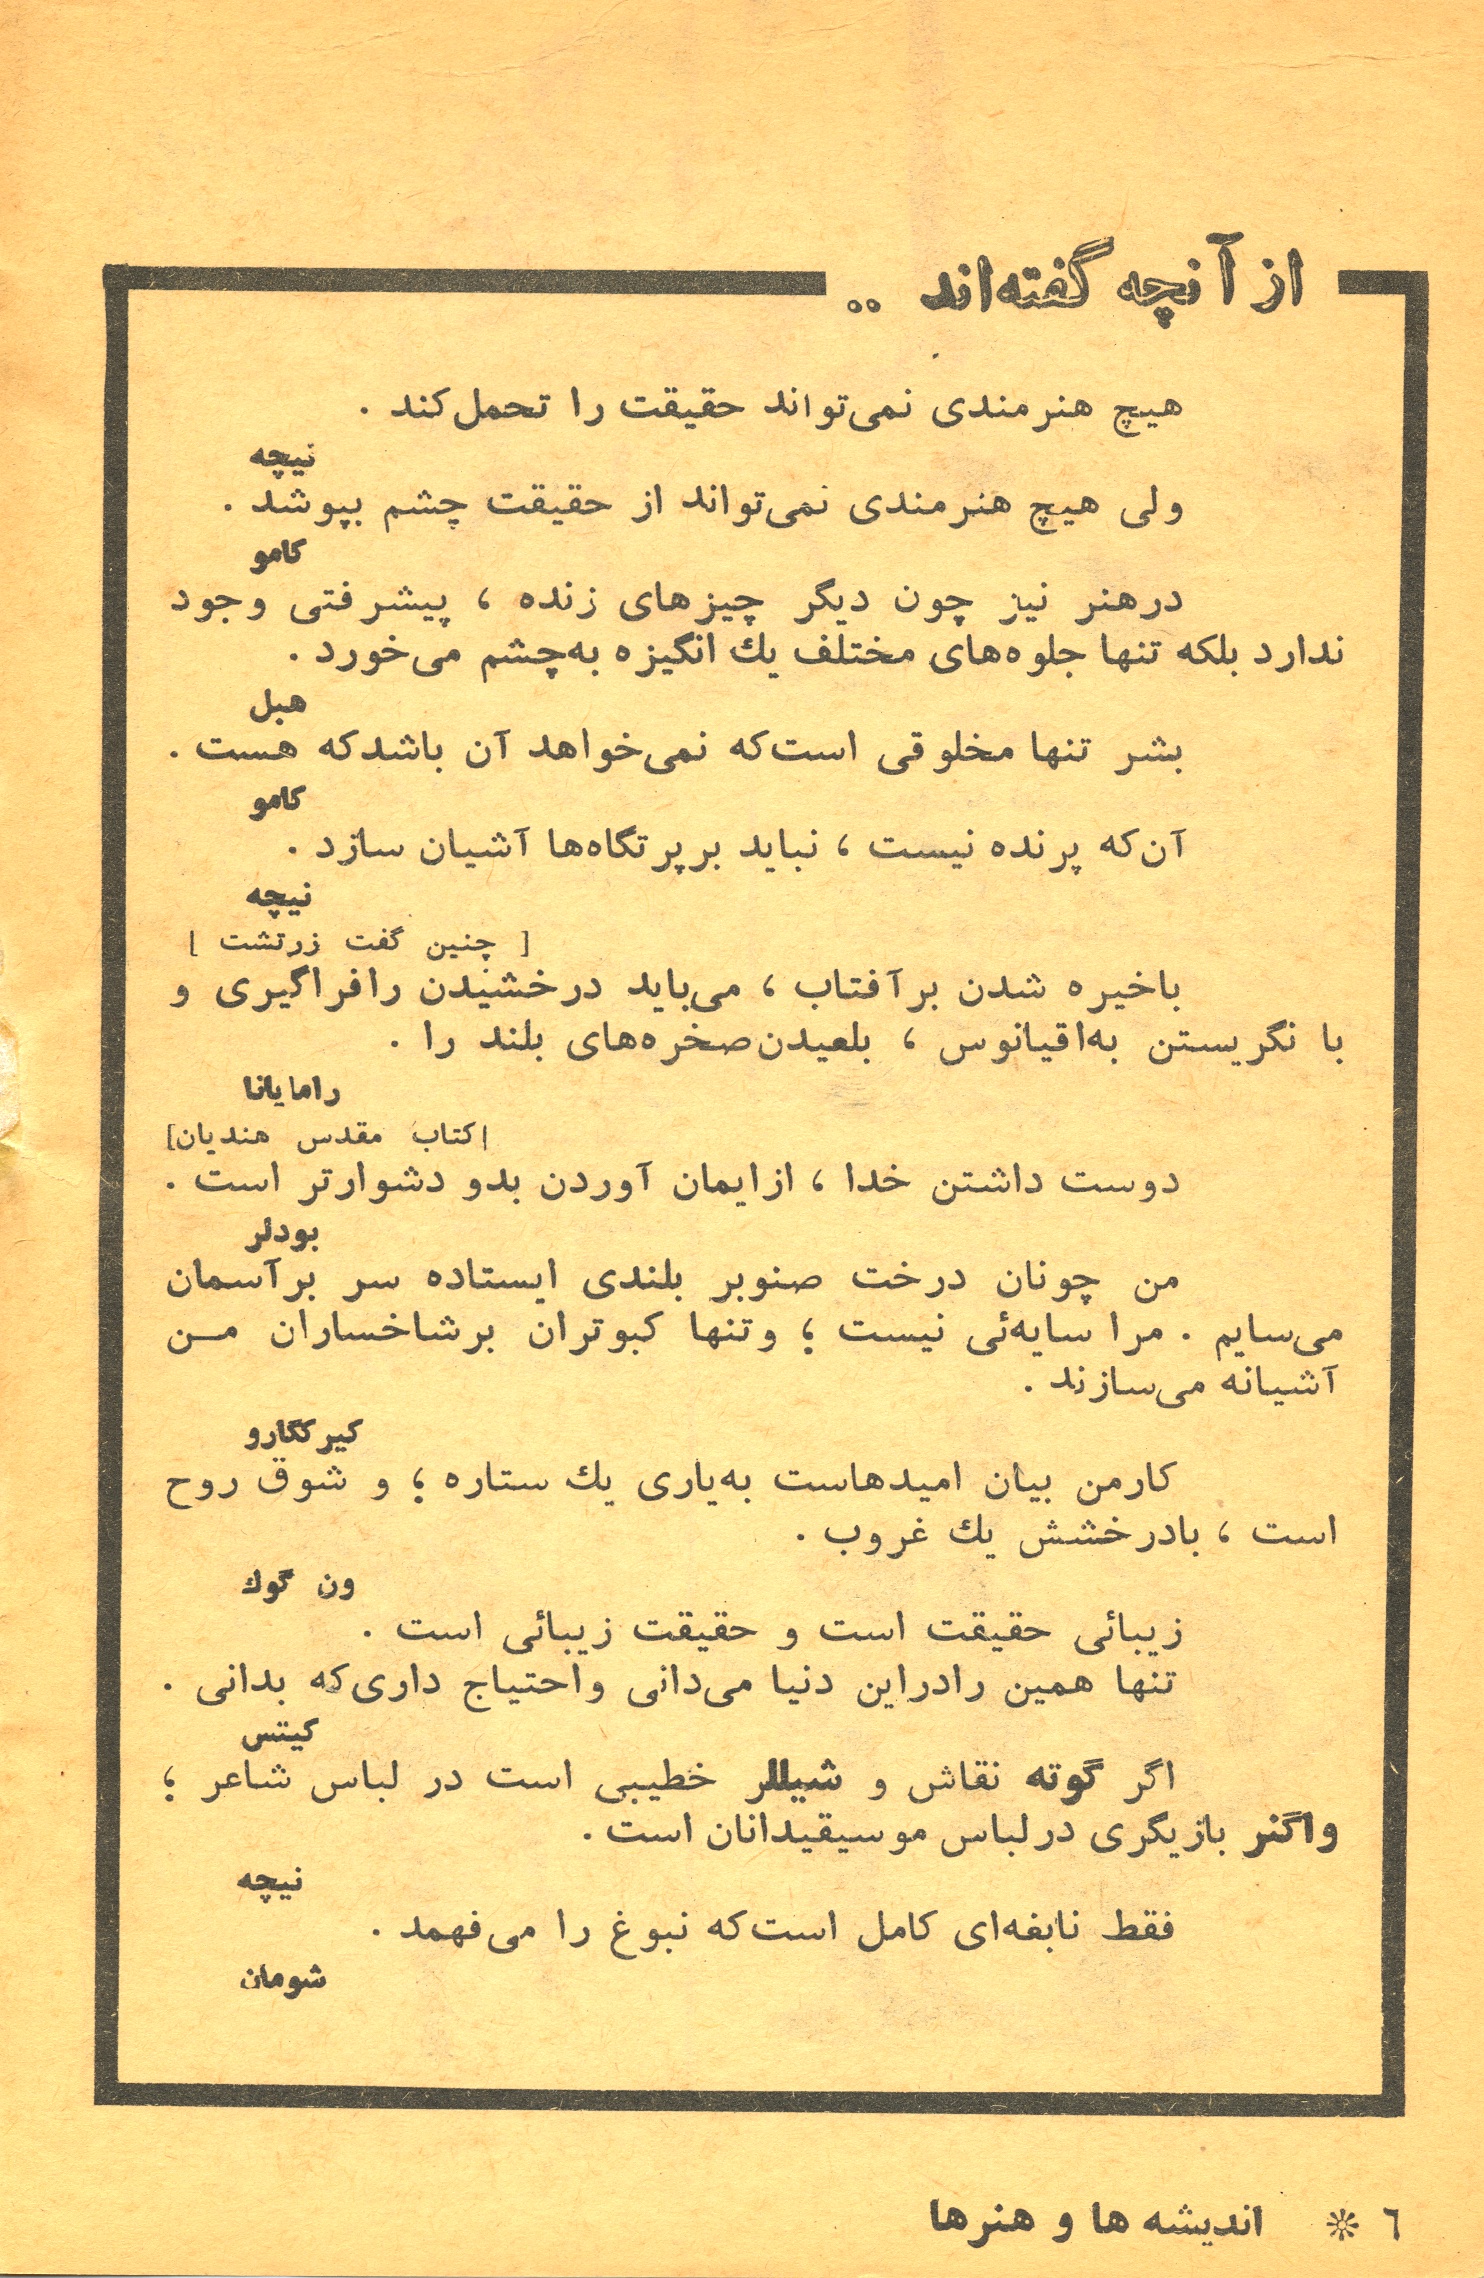 از آنچه گفته‌اند ..
هیچ هنرمندی نمی‌تواند حقیقت را تحمل کند .
نیچه
ولی هیچ هنرمندی نمی‌تواند از حقیقت چشم بپوشد .
کامو
درهنر نیز چون دیگر چیزهای زنده ، پیشرفتی وجود
ندارد بلکه تنها جلوه‌های مختلف یك انگیزه به‌چشم می‌خورد .
هبل
بشر تنها مخلوقی است‌که نمی‌خواهد آن باشدکه هست .
کامو
آن‌که پرنده نیست ، نباید برپرتگاه‌ها آشیان سازد .
نیچه
[ چنین گفت زرتشت ]
باخیره شدن برآفتاب ، می‌باید درخشیدن رافراگیری و
با نگریستن به‌اقیانوس ، بلعیدن‌صخره‌های بلند را .
رامایانا
[کتاب مقدس هندیان]
دوست داشتن خدا ، ازایمان آوردن بدو دشوارتر است .
بودلر
من چونان درخت صنوبر بلندی ایستاده سر برآسمان
می‌سایم . مرا سایه‌ئی نیست ؛ وتنها کبوتران برشاخساران مـن
آشیانه می‌سازند .
کیرکگارو
کارمن بیان امیدهاست به‌یاری یك ستاره ؛ و شوق روح
است ، بادرخشش یك غروب .
ون گوك
زیبائی حقیقت است و حقیقت زیبائی است .
تنها همین رادراین دنیا می‌دانی واحتیاج داری‌که بدانی .
کیتس
اگر گوته نقاش و شیللر خطیبی است در لباس شاعر ؛
واگنر بازیگری درلباس موسیقیدانان است .
نیچه
فقط نابغه‌ای کامل است‌که نبوغ را می‌فهمد .
شومان
٦ ❊ اندیشه ها و هنرها